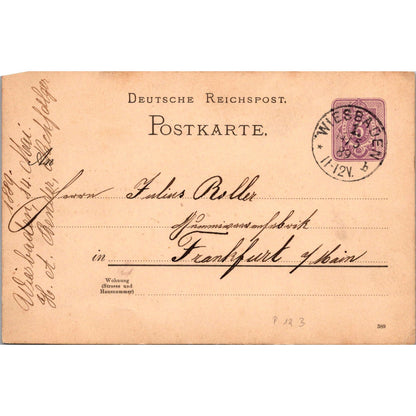 DEUTSCHE REICHSPOST.
POSTKARTE.
An
Herrn Julius Roller
Gummiwarenfabrik
in Frankfurt a/Main
Wohnung
(Strasse und
Hausnummer)
WIESBADEN
89
11-12V.
1889.
Wiesbaden, 14 Mai
Nachfolger
P. 12 3
389